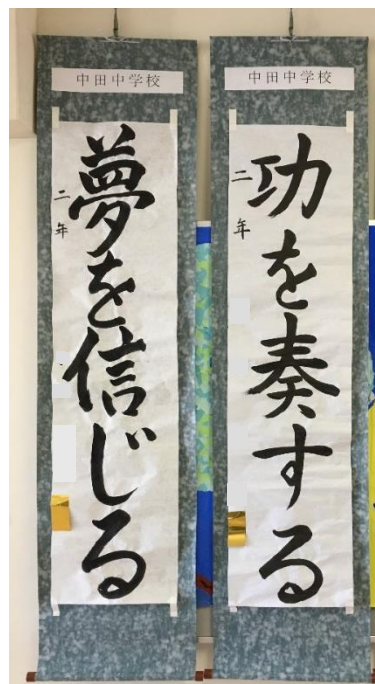 中田中学校
功を奏する
二年
中田中学校
夢を信じる
二年